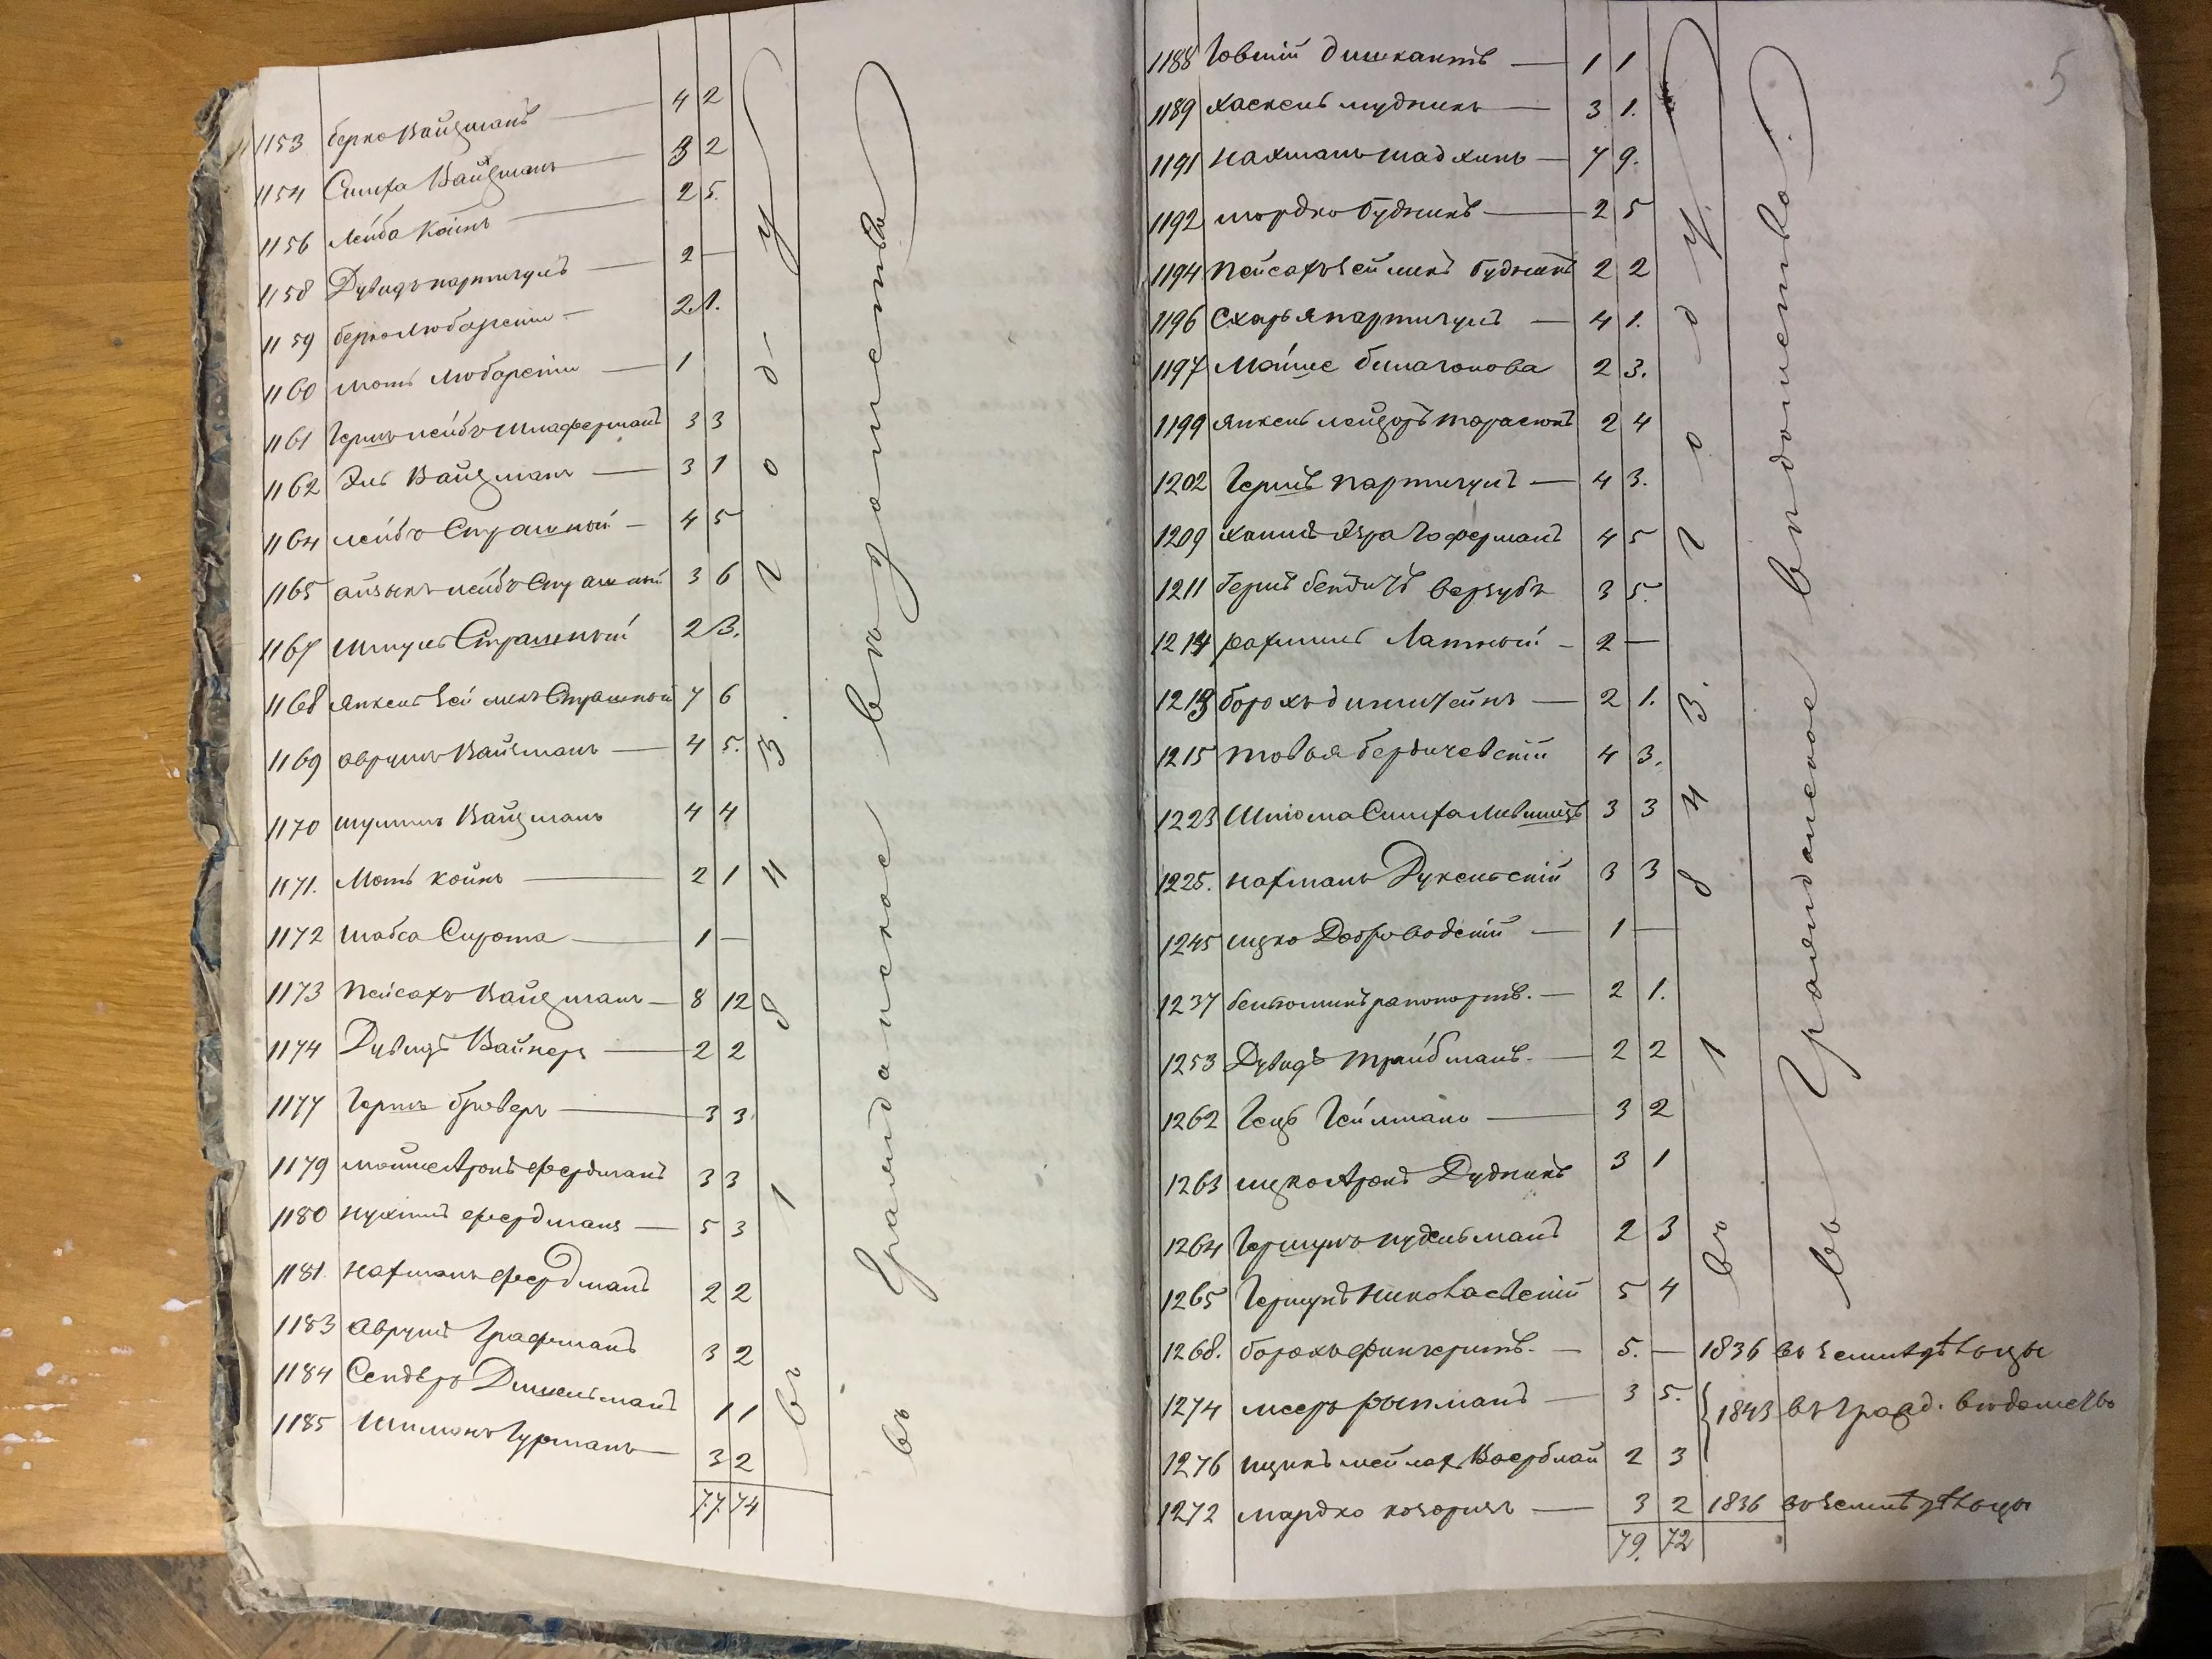 1153 Берко Вайцманъ — 4 2
1154 Симха Вайцманъ — 3 2
1156 Лейба Койнъ — 2 5.
1158 Дувидъ Портигулъ — 2 —
1159 Берко Любарскій — 2 1.
1160 Моть Любарскій — 1
1161 Гершъ Лейбъ Шлаферманъ 3 3
1162 Эль Вайцманъ — 3 1
1164 Лейбъ Страшной — 4 5
1165 Айзыкъ Лейбъ Страшный 3 6
1167 Шмуль Страшный 2 3.
1168 Янкель Зейликъ Страшной 7 6
1169 Аврумъ Вайцманъ — 4 5.
1170 Шулимъ Вайцманъ 4 4
1171. Моть Койнъ — 2 1
1172 Шабса Сирота — 1 —
1173 Пейсахъ Вайцманъ — 8 12
1174 Дувидъ Вайнеръ — 2 2
1177 Гершъ Броверъ — 3 3
1179 Мойше Аронъ Фердманъ 3 3
1180 Нухимъ Фердманъ — 5 3
1181. Нахманъ Фердманъ 2 2
1183 Аврумъ Графманъ 3 2
1184 Сендеръ Дишельманъ 1 1
1185 Шимонъ Гурманъ — 3 2
77. 74
въ 1843. году
въ Гражданское вѣдомство
5
1188 Іовшій Дишкантъ — 1 1
1189 Хаскель Мудрикъ — 3 1.
1191 Нахманъ Шадхинъ — 7 9.
1192 Мордко Будникъ — 2 5
1194 Пейсахъ Зейликъ Будникъ 2 2
1196 Схарья Портигулъ — 4 1.
1197 Мойше Билагонова 2 3.
1199 Янкель Лейзоръ Тарасюкъ 2 4
1202 Гершъ Портигулъ — 4 3.
1209 Хаимъ Гоферманъ 4 5
1211 Гершъ Бендитъ Верзубъ 3 5.
1214 Рахмиль Латный — 2 —
1213 Борохъ — 2 1.
1215 Товья Бердичевскій 4 3.
1223 Шлюма Симха Лившицъ 3 3
1225. Нахманъ Дукельскій 3 3
1245 Ицко Доброводскій — 1 —
1237 Беньюминъ Рапопортъ. — 2 1.
1253 Дувидъ Трайбманъ. — 2 2
1262 Гецъ Гейлманъ — 3 2
1263 Ицко Аронъ Дудникъ 3 1
1264 Гершунъ Нудельманъ 2 3
1265 Гершунъ Николаевскій 5 4
1268. Борохъ Финкритъ. — 5. — 1836 въ земледѣльцы
1274 Мееръ Рыпманъ — 3 5. 1843 въ гражд. вѣдомство
1276 Ицикъ Мейлах Ваерблай 2 3
1272 Мордко Козоричъ — 3 2 1836 въ земледѣльцы
79. 72
въ 1843. году
въ Гражданское вѣдомство.